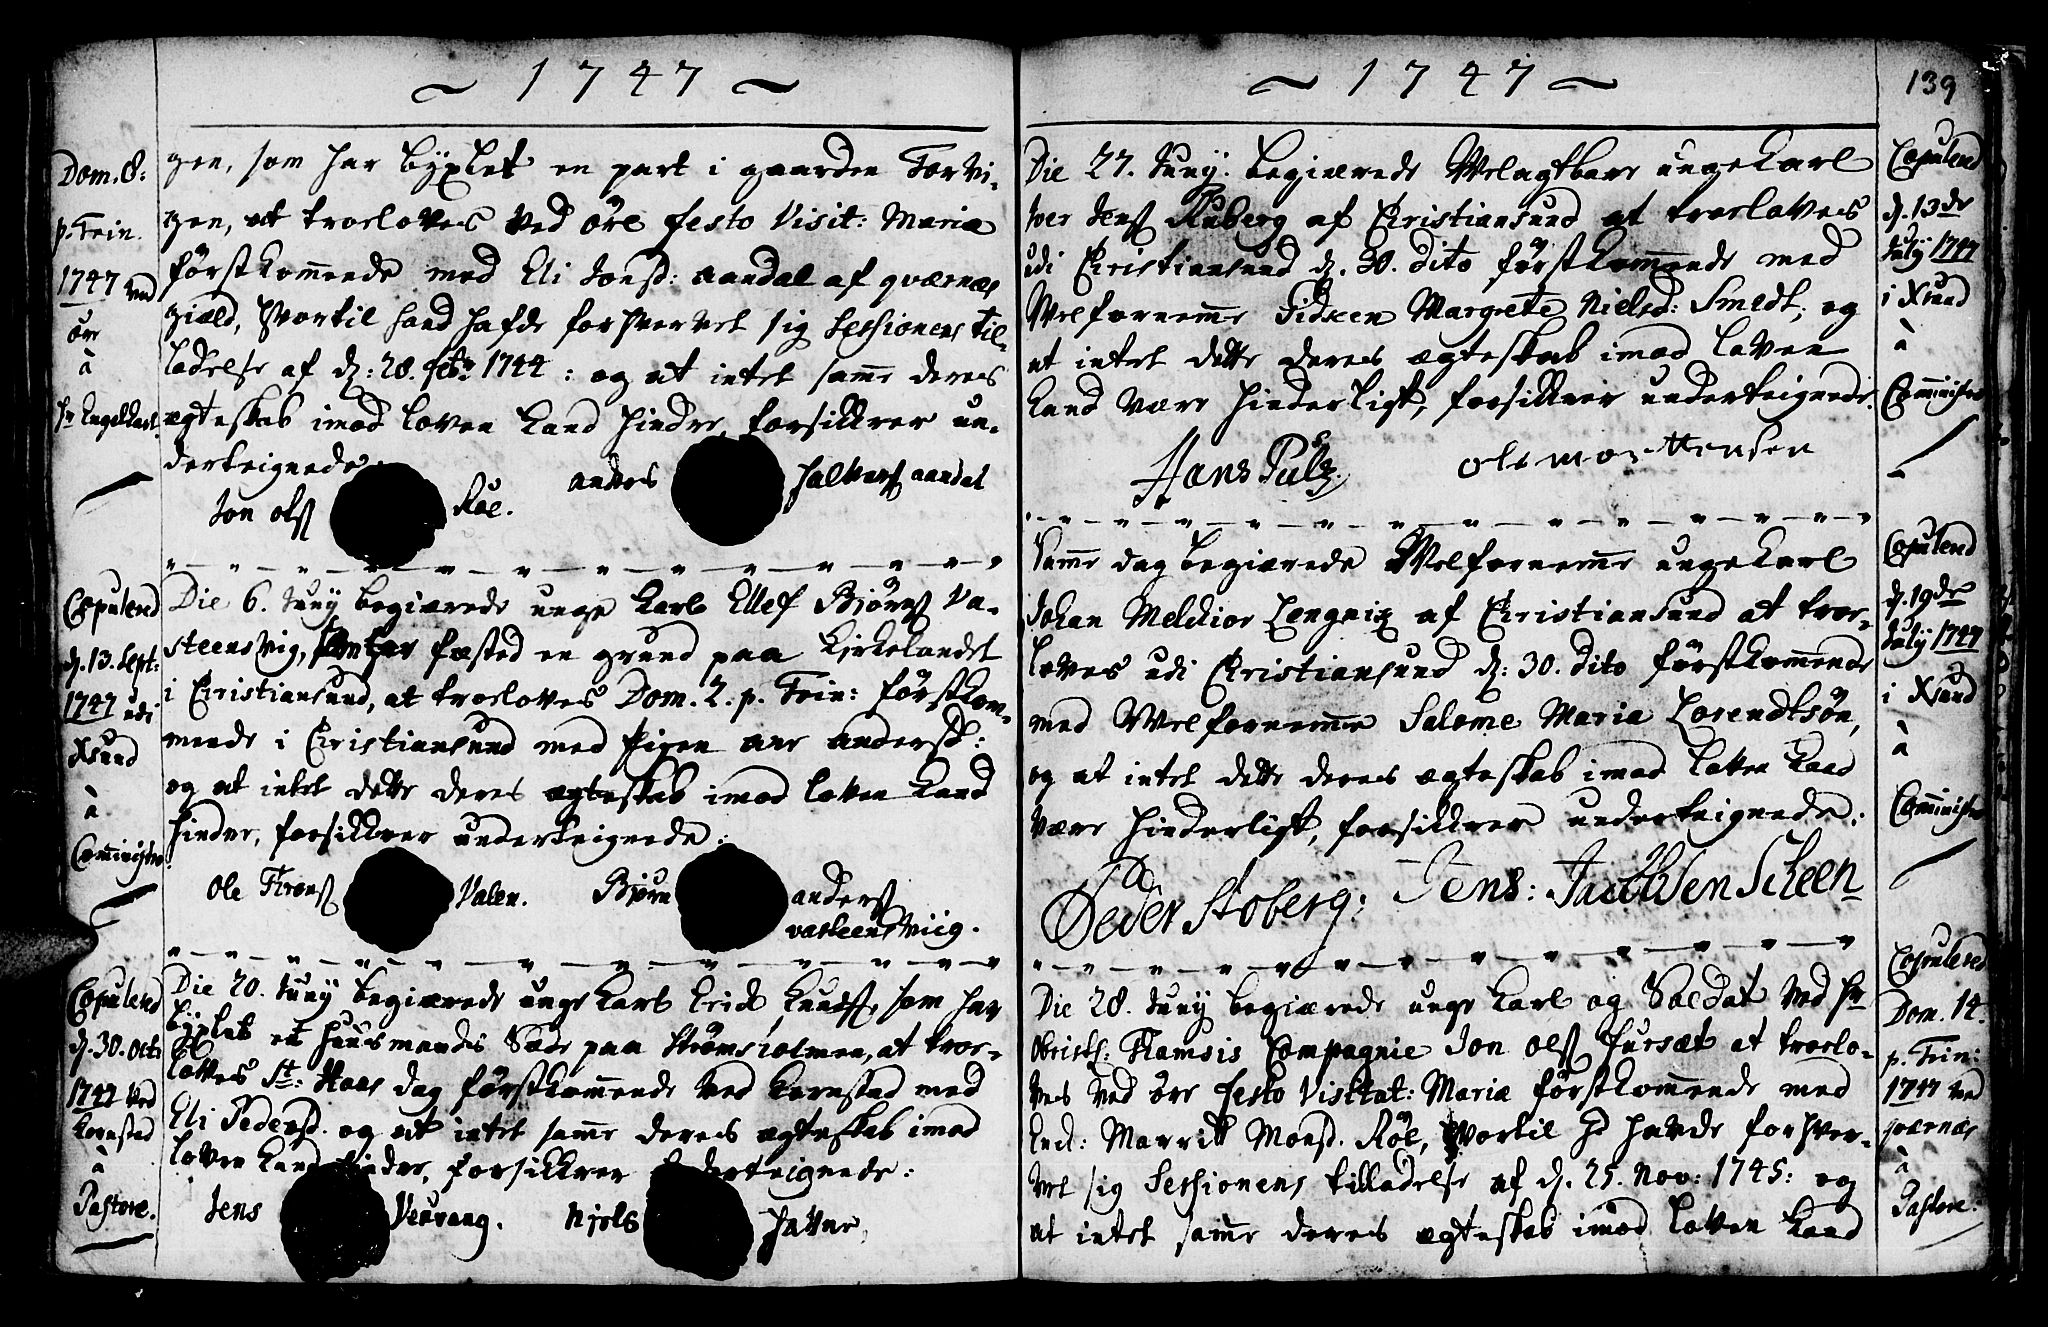 ~ 1747 ~
Dom. 8:
p. Trin.
1747 ved
Øre
à
Hr Engelhart.
gen, som har byxlet en part i gaarden Torvi-
gen, at troeloves ved Øre festo Visit: Mariæ
förstkommende med Eli Jonsd: Aandal af Qværnæs
gield, hvortil hand hafde forhvervet sig Sessionens til-
ladelse af d: 28. Febr: 1744: og at intet samme deres
ægteskab imod loven kand hindre, forsikkrer un-
derteignede.
Jon Ols: Röe.
Anders Halvors: Aandal
Copulered
d. 13. Sept:
1747 udi
Xsund
à
Cominist:
Die 6. Juny begierede unge Karl Ellef Björns: Va-
steensvig, fæsted en grund paa Kirkelandet
i Christiansund, at troeloves Dom. 2. p. Trin: förstkom-
mende i Christiansund med Pigen Ane Andersd:
og at intet dette deres ægteskab imod loven kand
hindre, forsikkrer underteignede:
Ole Trons: Valen.
Björn Anders:
Vasteensviig.
Copulered
d. 30. Oct:
1747 ved
Kornstad
à
Pastore.
Die 20. Juny begierede unge Karl Erich Knuds:, som har
byxlet et Huusmands Sæde paa Strömsholmen, at troe-
loves St: Hans dag förstkommende ved Kornstad med
Eli Pedersd. og at intet samme deres ægteskab imod
loven kand hindre, forsikkrer underteignede:
Jens Vevang. Njels Hatne,
~ 1747 ~
139
Die 27. Juny. begierede Velagtbare unge Karl
Jens Ruberg af Christiansund at troeloves
udi Christiansund d. 30. dito förstkommende med
Velfornemme Pidken Margrete Nielsd: Smedt, og
at intet dette deres ægteskab imod loven
kand være hinderligt, forsikkrer underteignede.
Hans Pülz. Ole Morttensen
Copulered
d. 13de
July 1747
i Xsund
à
Cõministro
Samme dag begierede Velfornemme unge Karl
Johan Melchior Lengnix af Christiansund at troe-
loves udi Christiansund d: 30. dito förstkommende
med Velfornemme Salome Maria Lorendtsön,
og at intet dette deres ægteskab imod loven kand
være hinderligt, forsikkrer underteignede:
Peder Stoberg: Jens: Jacobsen Scheen
Copulered
d. 19de
July 1747
i Xsund
à
Cõministro
Die 28. Juny begierede unge Karl og Soldat ved Hr
Obristl: Flamsis Compagnie Jon Ols: Fursæt at troelo-
ves ved Öre festo Visitat: Mariæ förstkommende med
Enck: Marritt Monsd. Röe, hvortil Hd havde forhver-
vet sig Sessionens tilladelse af d. 25. Nov: 1745: og
at intet samme deres ægteskab imod loven kand
Copulered
Dom. 14.
p. Trin:
1747 ved
Qværnæs
à
Pastore: